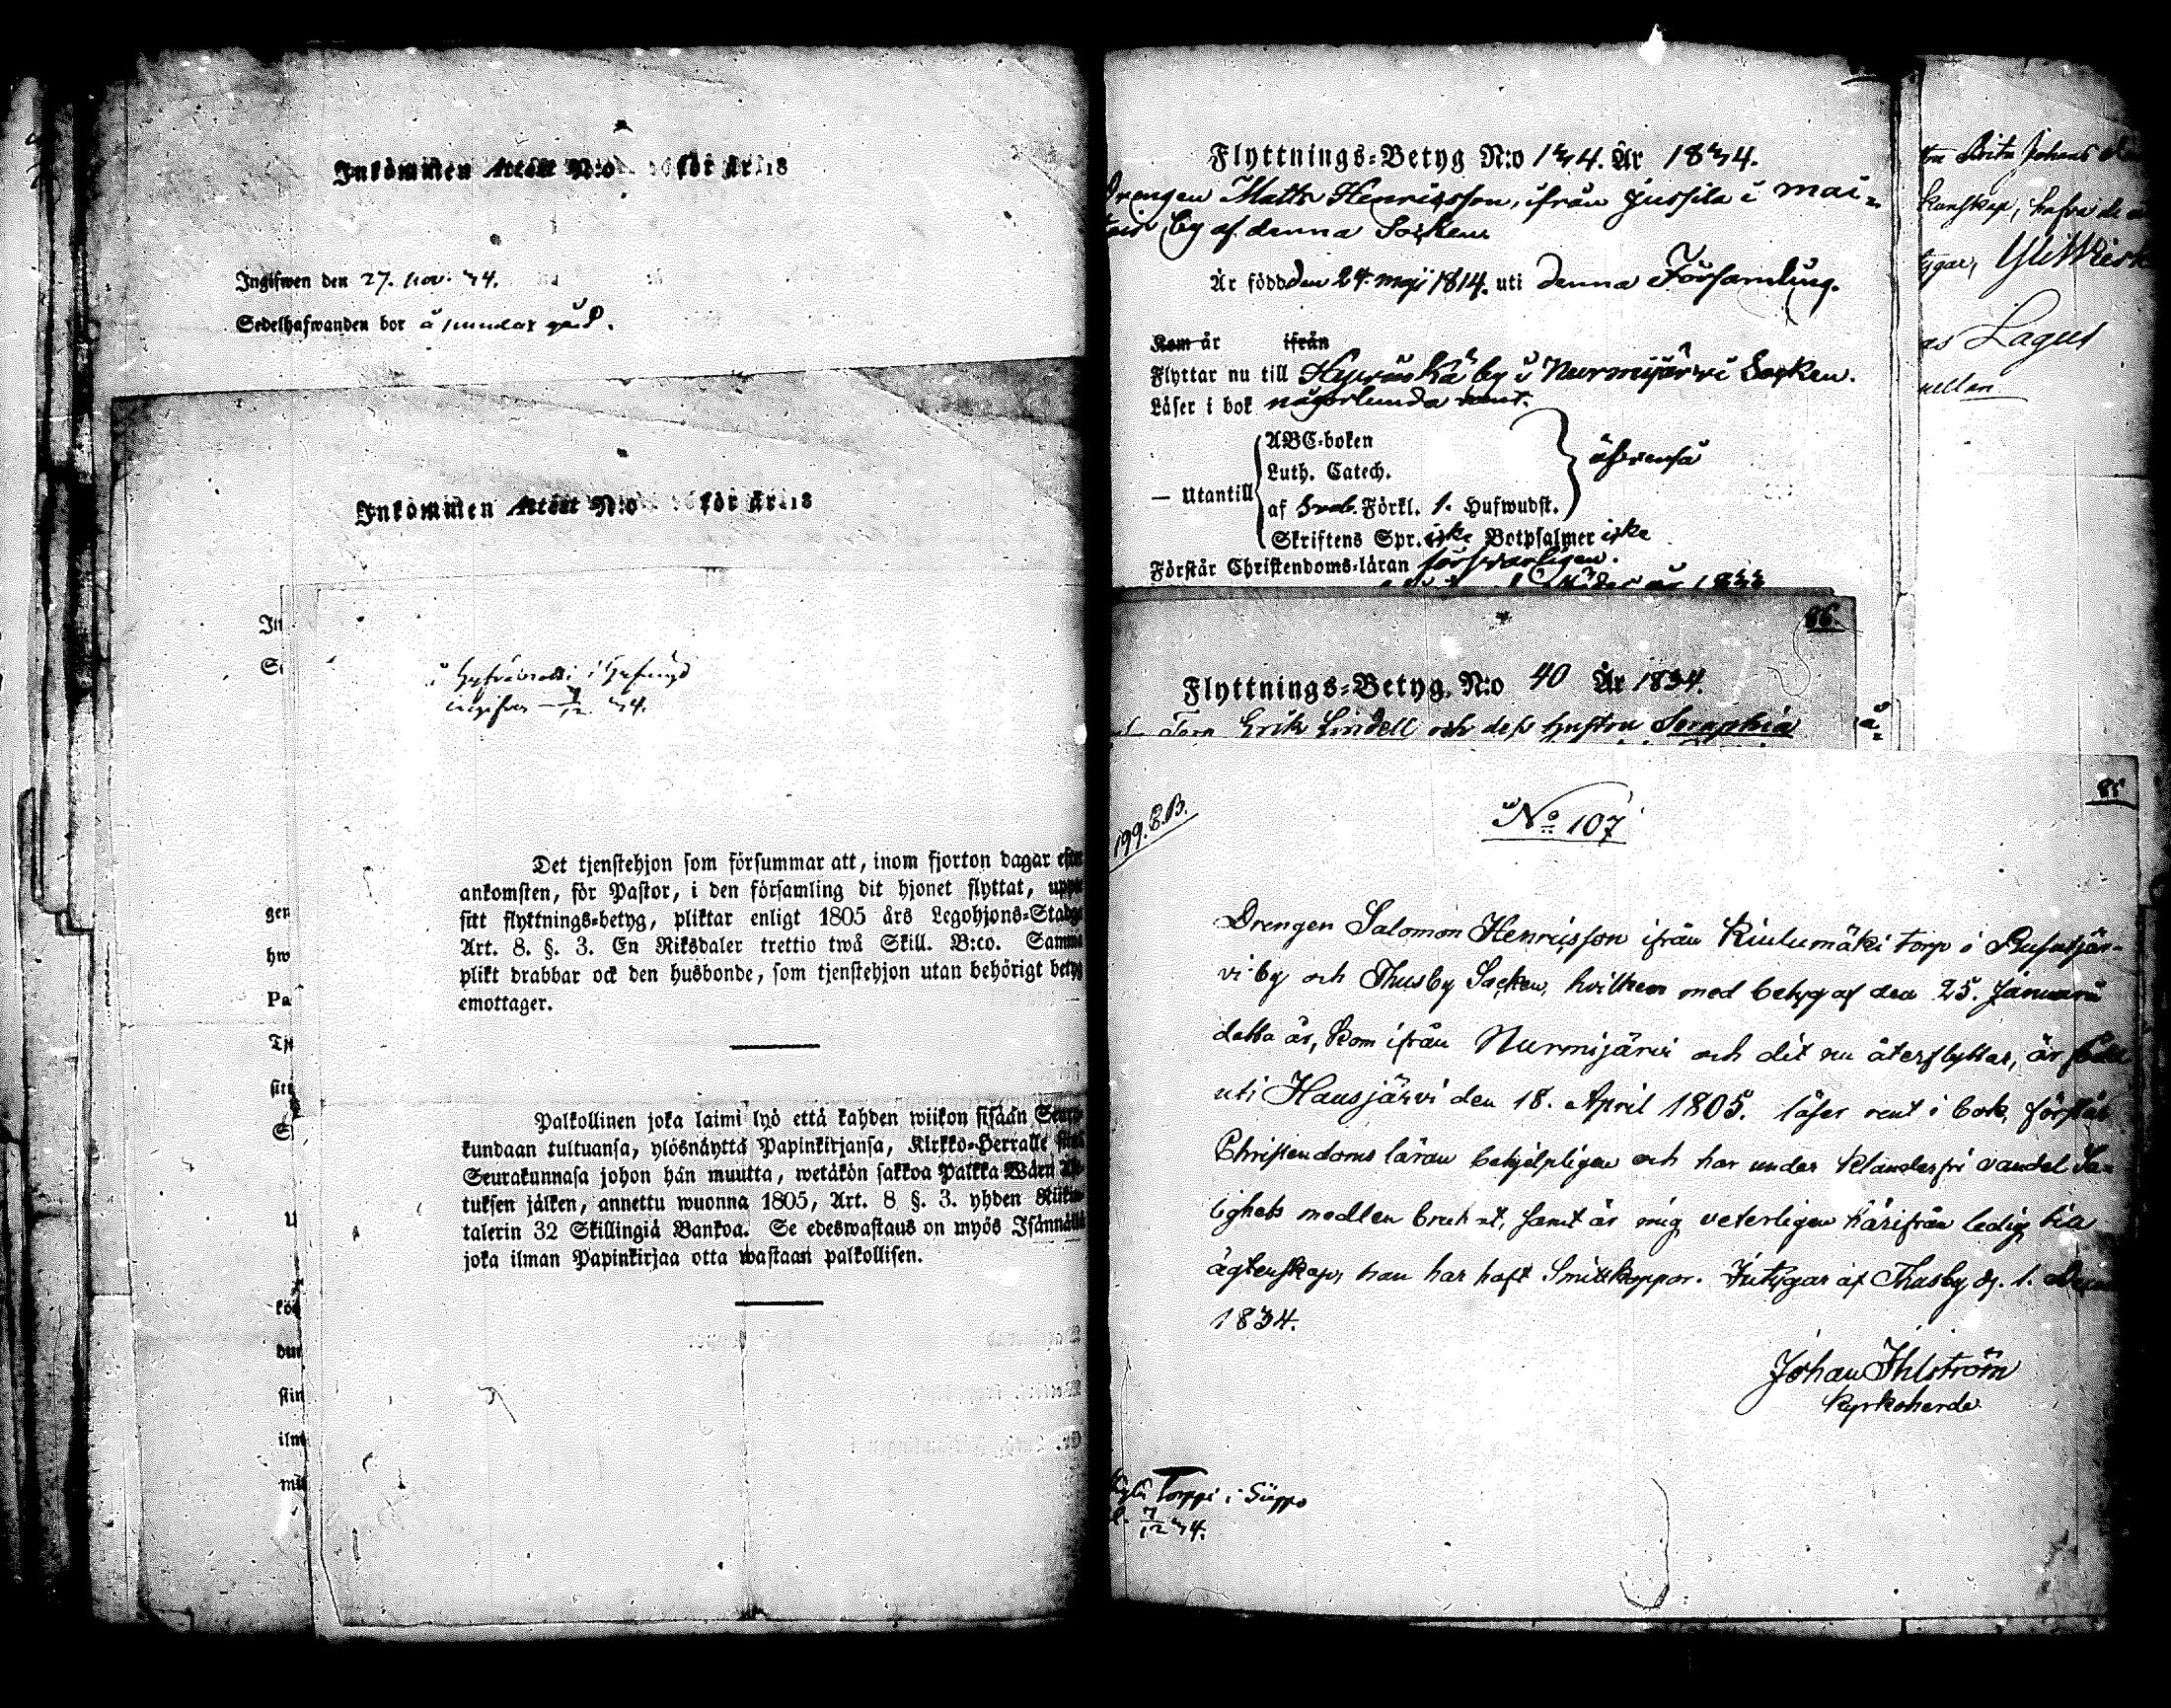 Inkommen Attest N:o för år 18
Ingifwen den 27. nov. 34.
Sedelhafwanden bor å gård.
Inkommen Attest N:o för år 18
In
S
i
ingifven 7/12 34.
gen
hw
Pa
Tje
sitt
E
U
kö
dm
stin
ilm
mu
Det tjenstehjon som försummar att, inom fjorton dagar efter
ankomsten, för Pastor, i den församling dit hjonet flyttat, uppte
sitt flyttnings-betyg, pliktar enligt 1805 års Legohjons-Stadga
Art. 8. §. 3. En Riksdaler trettio twå Skill. B:co. Samma
plikt drabbar ock den husbonde, som tjenstehjon utan behörigt betyg
emottager.
Palkollinen joka laimi lyö että kahden wiikon sisään Seura-
kundaan tultuansa, ylösnäyttä Papinkirjansa, Kirkko-Herralle siinä
Seurakunnasa johon hän muutta, wetäkön sakkoa Palkka Wäen
tuksen jälken, annettu wuonna 1805, Art. 8 §. 3. yhden Riikin-
talerin 32 Skillingiä Bankoa. Se edeswastaus on myös Isännällä
joka ilman Papinkirjaa otta wastaan palkollisen.
Flyttnings-Betyg N:o 134. År 1834.
Drengen Matts Henricsson, ifrån Jussila i Mai-
by af denna Socken
Är född den 24. Maji 1814. uti denna Församling.
Kom år ifrån
Flyttar nu till Hyvinkä by i Nurmijärvi Socken.
Läser i bok någorlunda rent.
— Utantill
ABC-boken
Luth. Catech.
af Förkl. 1. Hufwudst.
Skriftens Spr. icke Botpsalmer icke
Förstår Christendoms-läran försvarligen.
år 1833
86.
Flyttnings-Betyg, N:o 40 År 1834.
Erik Lindell och dess hustru Seraphia
Brita Johans
kunskap, hafva de
tygar,
Lagus
85
199. E.B.
No 107
Drengen Salomon Henricsson ifrån Kiulumäki torp i Rusutjär-
vi by och Thusby Socken, hvilken med betyg af den 25. Januarii
detta år, kom ifrån Nurmijärvi och dit nu återflyttar, är född
uti Hausjärvi den 18. April 1805. läser rent i bok, förstår
Christendoms läran behjelpligen och har under klanderfri vandel Sa-
lighets medlen brukat, samt är mig veterligen härifrån ledig till
ägtenskap, han har haft Smittkoppor. Intygar af Thusby d. 1. Decem
1834.
Johan Ihlström
Kyrkoherde
Torppi i Siippo
7/12 34.